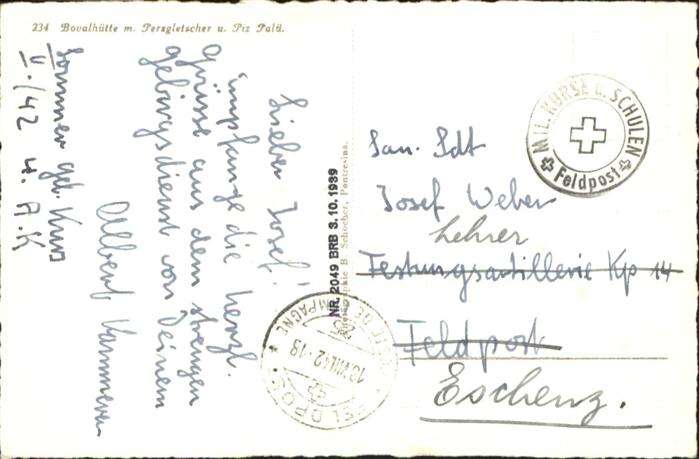 234 Bovalhütte m. Persgletscher u. Piz Palü.
Lieber Josef!
impfange die herzl.
Grüsse aus dem strengen
gebirgsdienst von Deinem
Albert Kammerer
Sommer geb. Kurs
V./42 4. A.K
Photographie B. Schocher, Pontresina.
NR. 2049 BRB 3.10.1939
MIL. KURSE u. SCHULEN
Feldpost
FELDPOST
POSTE DE CAMPAGNE
18.VIII.42-18
San. Sdt
Josef Weber
Lehrer
Festungsartillerie Kp 14
Feldpost
Eschenz.